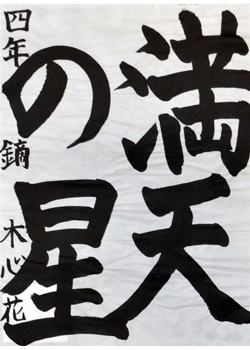 満天
の星
四年 鏑木心花